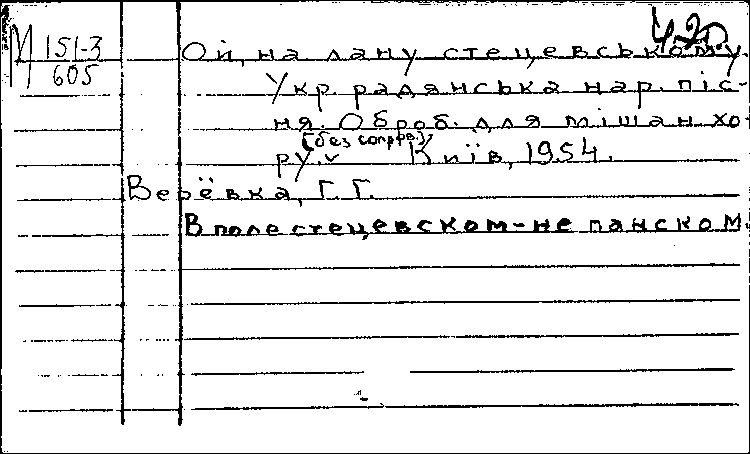 М 151-3
605
420
Ой, на лану стецевському.
Укр. радянська нар. піс-
ня. Оброб. для мішан. хо-
[без сопров.]
ру. v Київ, 1954.
Верёвка, Г. Г.
В поле стецевском-не панском.